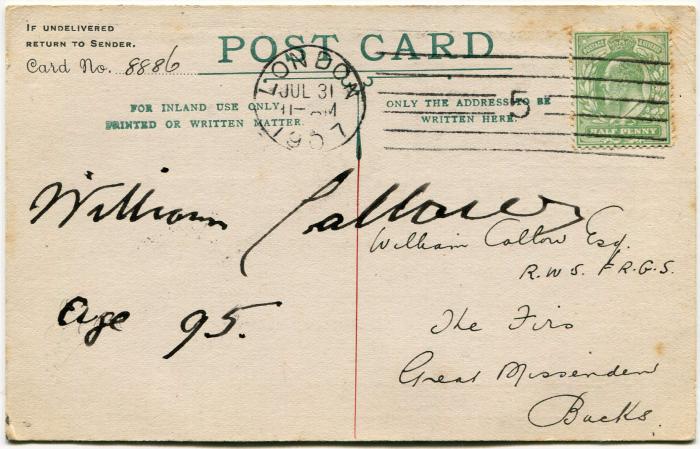 IF UNDELIVERED
RETURN TO SENDER.
Card No. 8886
POST CARD
LONDON
JUL 31
1907
5
POSTAGE & REVENUE
HALF PENNY
FOR INLAND USE ONLY
PRINTED OR WRITTEN MATTER.
ONLY THE ADDRESS TO BE
WRITTEN HERE.
William Callow
Age 95.
William Callow Esq.
R.W.S. F.R.G.S.
The Firs
Great Missenden
Bucks.